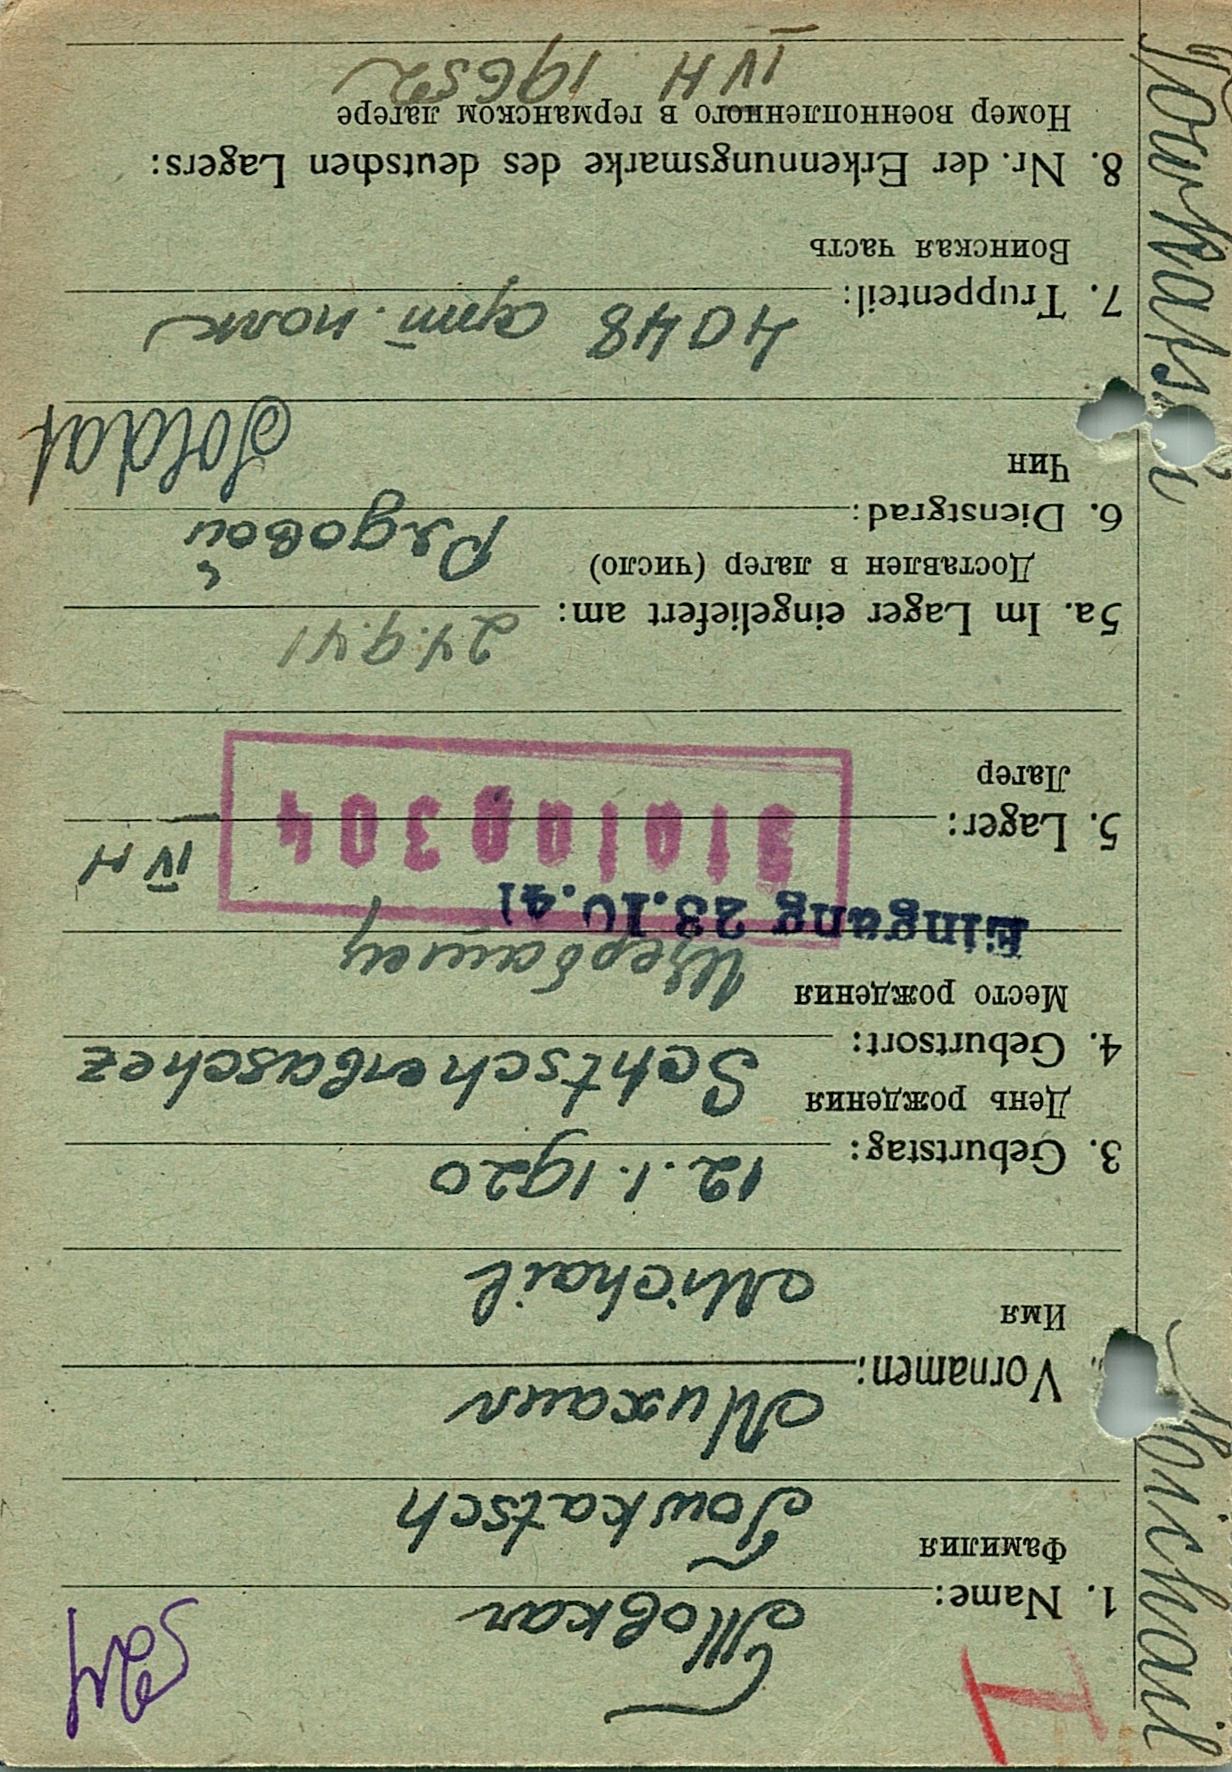 1. Name: Товкач
Фамилия Towkatsch
Vornamen: Михаил
Имя Michail
3. Geburtstag: 12.1.1920
День рождения
4. Geburtsort: Schtscherbaschez
Место рождения Щербашец
Eingang 23.10.41
5. Lager: IV H
Лагер
5a. Im Lager eingeliefert am: 24.9.41
Доставлен в лагер (число)
6. Dienstgrad: Рядовой
Чин Soldat
7. Truppenteil: 4048 арт. полк
Воинская часть
8. Nr. der Erkennungsmarke des deutschen Lagers:
Номер военнопленного в германском лагере
IV H 19652
Michail